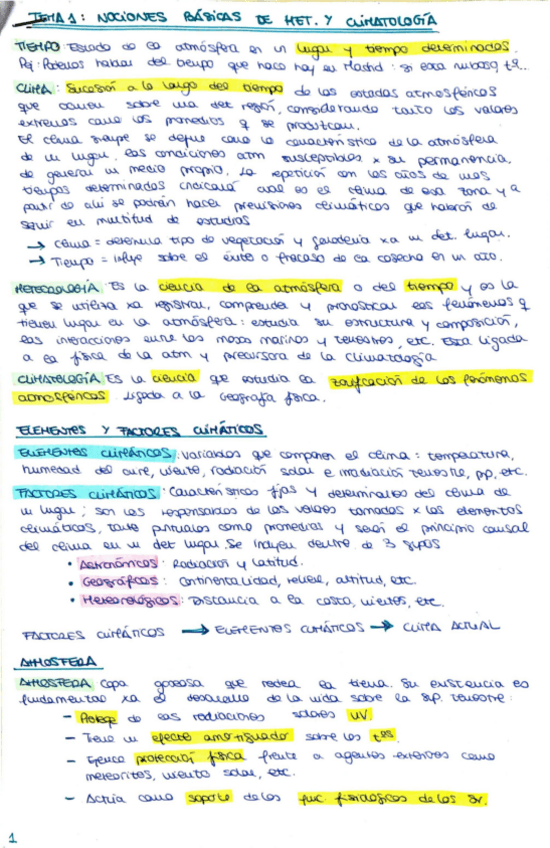 TEMA 1: NOCIONES BÁSICAS DE MET. Y CLIMATOLOGÍA
TIEMPO: Estado de la atmósfera en un lugar y tiempo determinados.
Pej: Podemos hablar del tiempo que hace hoy en Madrid: si está nuboso, tª...
CLIMA: Sucesión a lo largo del tiempo de los estados atmosféricos
que ocurren sobre una det región, considerando tanto los valores
extremos como los promedios q se produzcan.
El clima siempre se define como la característica de la atmósfera
de un lugar, las condiciones atm susceptibles x su permanencia,
de generar un medio propio, la repetición con los años de unos
tiempos determinados indicará cual es el clima de esa zona y a
partir de ahí se podrán hacer previsiones climáticas que habrán de
seguir en multitud de estudios
→ Clima = determina tipo de vegetación y ganadería xa un det. lugar.
→ Tiempo = influye sobre el éxito o fracaso de la cosecha en un año.
METEOROLOGÍA: Es la ciencia de la atmósfera o del tiempo y es la
que se utiliza xa registrar, comprender y pronosticar los fenómenos q
tienen lugar en la atmósfera: estudia su estructura y composición,
las interacciones entre las masas marinas y terrestres, etc. Está ligada
a la física de la atm y precursora de la climatología
CLIMATOLOGÍA: Es la ciencia que estudia la zonificación de los fenómenos
atmosféricos. Ligada a la Geografía física.
ELEMENTOS Y FACTORES CLIMÁTICOS
ELEMENTOS CLIMÁTICOS: variables que componen el clima: temperatura,
humedad del aire, viento, radiación solar e irradiación terrestre, pp, etc.
FACTORES CLIMÁTICOS: Características fijas y determinantes del clima de
un lugar; son los responsables de los valores tomados x los elementos
climáticos, tanto puntuales como promedios y será el principio causal
del clima en un det lugar. Se incluyen dentro de 3 grupos
• Astronómicos: Radiación y latitud.
• Geográficos: Continentalidad, relieve, altitud, etc.
• Meteorológicos: Distancia a la costa, vientos, etc.
FACTORES CLIMÁTICOS → ELEMENTOS CLIMÁTICOS → CLIMA ACTUAL
ATMOSFERA
ATMOSFERA: Capa gaseosa que rodea la tierra. Su existencia es
fundamental xa el desarrollo de la vida sobre la sup. terrestre:
– Protege de las radiaciones solares UV.
– Tiene un efecto amortiguador sobre las tªs.
– Ejerce protección física frente a agentes externos como
meteoritos, viento solar, etc.
– Actúa como soporte de los func. fisiológicas de los sv.
1